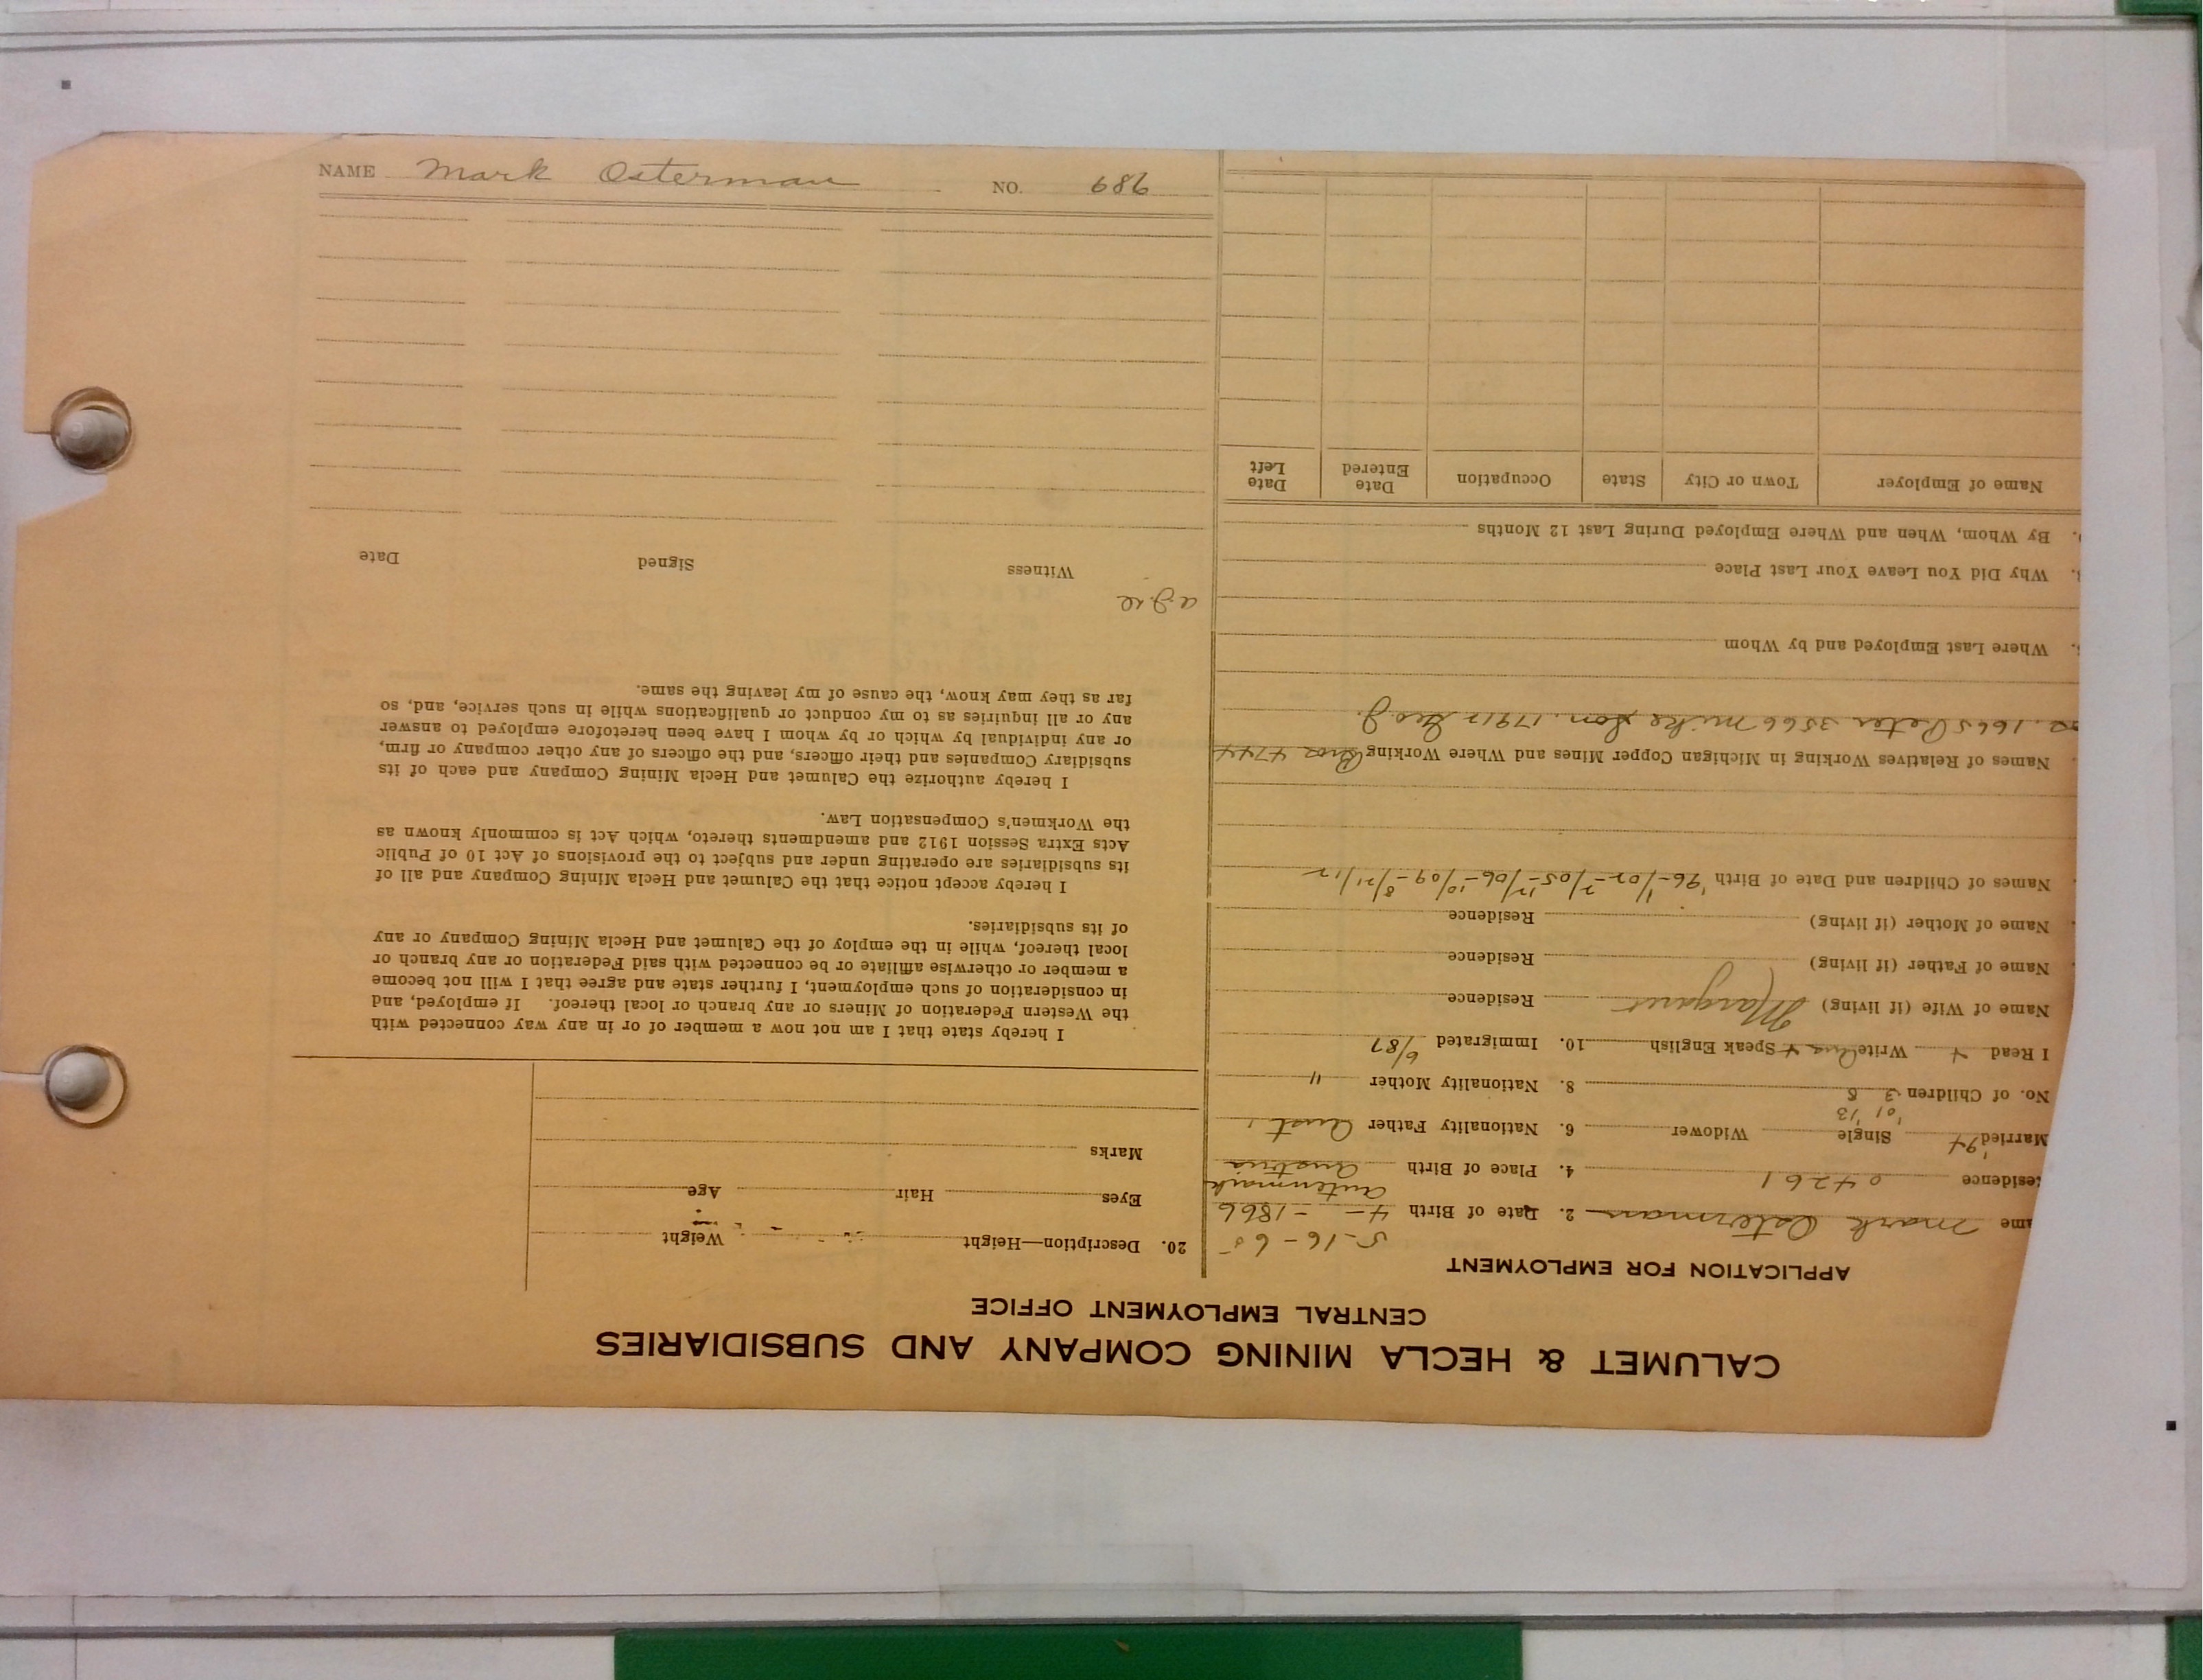 NAME Mark Osterman NO. 989
CALUMET & HECLA MINING COMPANY AND SUBSIDIARIES
CENTRAL EMPLOYMENT OFFICE
APPLICATION FOR EMPLOYMENT
5-16-65
ame Mark Osterman 2. Date of Birth 4- -1866
esidence 04261 4. Place of Birth Austria
Married '94 Single Widower 6. Nationality Father Aust.
'01 '13
No. of Children 3 8 8. Nationality Mother "
I Read + Write + Speak English 10. Immigrated 6/87
Name of Wife (if living) Margaret Residence
Name of Father (if living) Residence
Name of Mother (if living) Residence
Names of Children and Date of Birth '96-11/02-7/05-12/06-10/09-8/21/12
Names of Relatives Working in Michigan Copper Mines and Where Working Bros 4744
1665 Peter 3566 Mike Son. 17912 Geo J.
Where Last Employed and by Whom
Why Did You Leave Your Last Place
By Whom, When and Where Employed During Last 12 Months
Name of Employer Town or City State Occupation Date Entered Date Left
20. Description—Height Weight
Eyes Hair Age
Marks
I hereby state that I am not now a member of or in any way connected with
the Western Federation of Miners or any branch or local thereof. If employed, and
in consideration of such employment, I further state and agree that I will not become
a member or otherwise affiliate or be connected with said Federation or any branch or
local thereof, while in the employ of the Calumet and Hecla Mining Company or any
of its subsidiaries.
I hereby accept notice that the Calumet and Hecla Mining Company and all of
its subsidiaries are operating under and subject to the provisions of Act 10 of Public
Acts Extra Session 1912 and amendments thereto, which Act is commonly known as
the Workmen's Compensation Law.
I hereby authorize the Calumet and Hecla Mining Company and each of its
subsidiary Companies and their officers, and the officers of any other company or firm,
or any individual by which or by whom I have been heretofore employed to answer
any or all inquiries as to my conduct or qualifications while in such service, and, so
far as they may know, the cause of my leaving the same.
Witness Signed Date